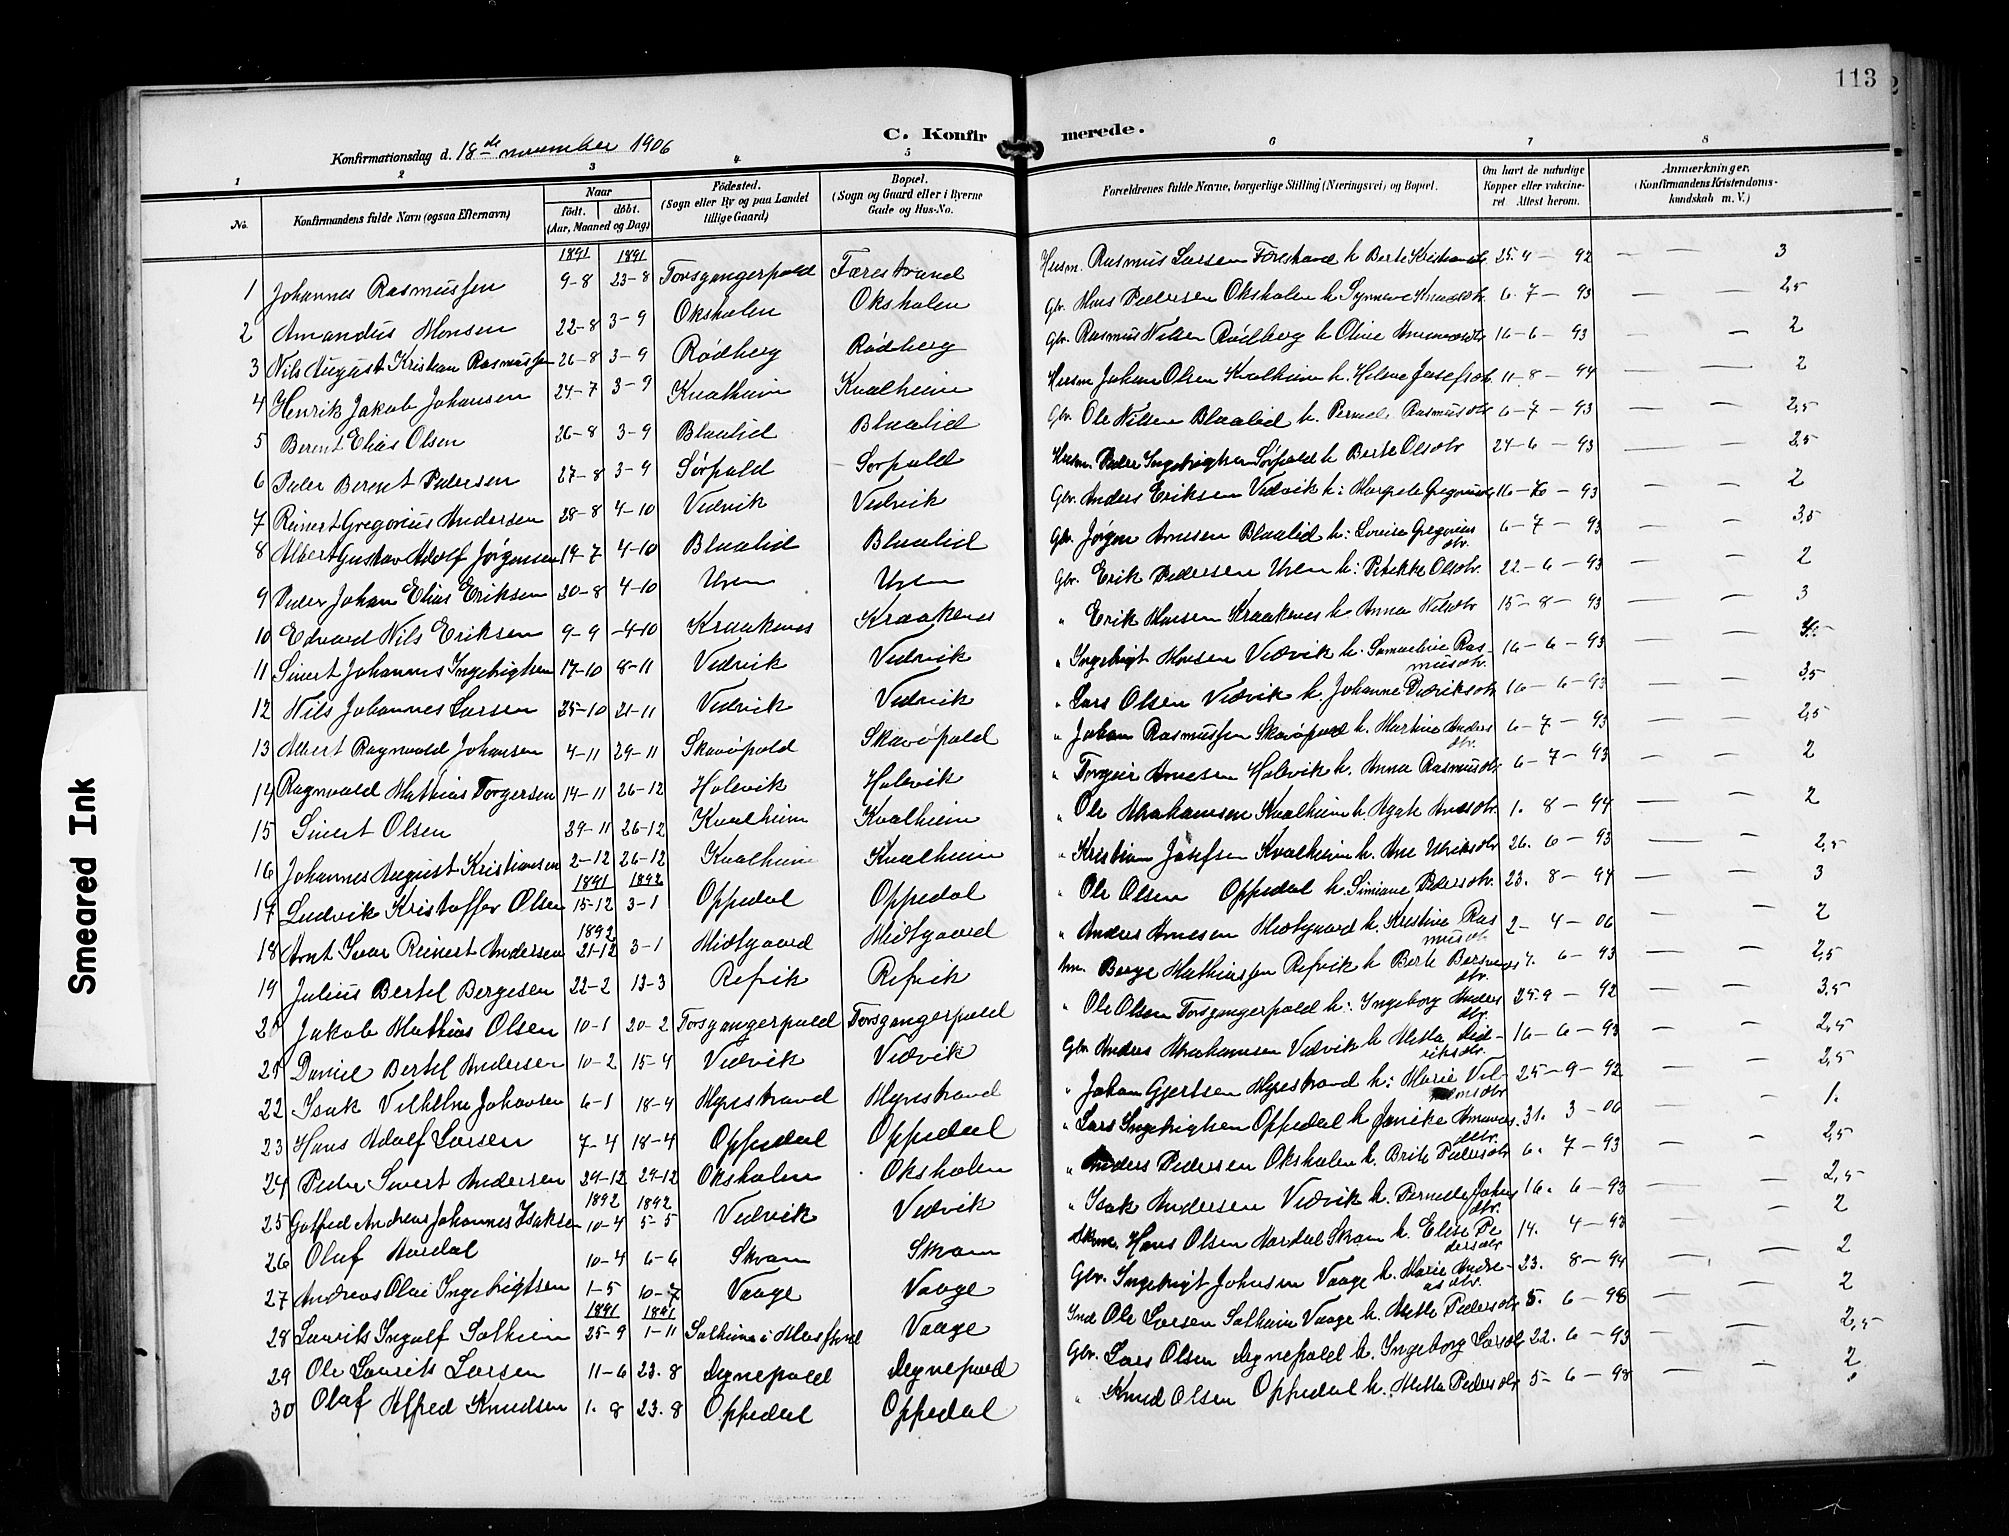 113
C. Konfirmerede.
Konfirmationsdag d. 18de november 1906
1 2 3 4 5 6 7 8
No.
Konfirmandens fulde Navn (ogsaa Efternavn)
Naar
født. døbt.
(Aar, Maaned og Dag)
Fødested.
(Sogn eller By og paa Landet
tillige Gaard)
Bopæl.
(Sogn og Gaard eller i Byerne
Gade og Hus-No.
Forældrenes fulde Navne, borgerlige Stilling (Næringsvei) og Bopæl.
Om havt de naturlige
Kopper eller vakcine-
ret. Attest herom.
Anmærkninger.
(Konfirmandens Kristendoms-
kundskab m. V.)
1891 1891
1 Johannes Rasmussen 9-8 23-8 Torsgangerpold Færestrand Husm. Rasmus Larsen Færestrand h. Berte 25. 4 - 92 — — 3
2 Amandus Monsen 22-8 3-9 Oksholen Oksholen Gbr. Mons Pedersen Oksholen h. Synneve Knudsdtr. 6. 7 - 93 — — 2,5
3 Nils August Kristian Rasmussen 26-8 3-9 Rødberg Rødberg Gbr. Rasmus Nilsen Rødberg h. Oline 16-6-93 — — 2
4 Henrik Jakob Johansen 24-7 3-9 Kvalheim Kvalheim Husm Johan Olsen Kvalheim h. Helene Josefsdtr. 11-8-94 — — 2
5 Berent Elias Olsen 26-8 3-9 Blaalid Blaalid Gbr. Ole Nilsen Blaalid h. Pernel. Rasmusdtr 6-7-93 — — 2,5
6 Peder Berent Pedersen 27-8 3-9 Sørpold Sørpold Husm. Peder Ingebrigtsen Sørpold h. Berte Olsdtr 24-6 93 — — 2,5
7 Reinert Gregorius Andersen 28-8 4-10 Vedvik Vedvik Gbr. Anders Eriksen Vedvik h: Margrete 16- -93 — — 2
8 Albert Gustav Adolf Jørgensen 19-7 4-10 Blaalid Blaalid Gbr. Jørgen Arnesen Blaalid h: Lovise Gregorius
dtr. 6-7-93 — — 3,5
9 Peder Johan Elias Eriksen 30-8 4-10 Uren Uren Gbr. Erik Pedersen Uren h: Olsdtr. 22-6-93 — — 2
10 Edvard Nils Eriksen 9-9 -4-10 Kraakenes Kraakenes " Erik Monsen Kraakenes h Anna Nilsdtr 15-8-93 — — 3
11 Sivert Johannes Ingebrigtsen 17-10 8-11 Vedvik Vedvik " Ingebrigt Monsen Vedvik h. Samueline Ras-
musdtr. 16-6-93 — —
12 Nils Johannes Larsen 25-10 21-11 Vedvik Vedvik " Lars Olsen Vedvik h Johanne Dideriksdtr 16-6-93 — — 3,5
13 Albert Ragnvald Johansen 4-11 29-11 Skavøpold Skavøpold " Johan Rasmussen Skavøpold h. Martine Anders
dtr. 6-7-93 — — 2,5
14 Ragnvald Mathias Torgersen 14-11 26-12 Holevik Holevik " Torgeir Arnesen Holevik h. Anna Rasmusdtr 6-7-93 — — 2
15 Sivert Olsen 29-11 26-12 Kvalheim Kvalheim " Ole Abrahamsen Kvalheim h. 1. 8-94 — — 2
16 Johannes August Kristiansen 2-12 26-12 Kvalheim Kvalheim " Kristian Josefsen Kvalheim h. Ane Ulriksdtr 26. 6-93 — — 2,5
1891 1892
17 Ludvik Kristoffer Olsen 15-12 3-1 Oppedal Oppedal " Ole Olsen Oppedal h. Simiane Pedersdtr. 23. 8-94 — — 3
1892
18 Arnt Ivar Reinert Andersen 21-12 3-1 Midtgaard Midtgaard " Anders Arnesen Midtgaard h. Kristine Ras
musdtr 2-4-06 — — 2
19 Julius Bertel Bergesen 22-2 13-3 Refvik Refvik Berge Mathiassen Refvik h Berte
dtr. 6-93 — — 2,5
20 Jakob Mathias Olsen 10-1 20-2 Torsgangerpold Torsgangerpold " Ole Olsen Torsgangerpold h: Ingeborg Anders
dtr. 25.9-92 — — 3,5
21 Daniel Bertel Andersen 10-2 15-4 Vedvik Vedvik Gbr Anders Abrahamsen Vedvik h Metta Did-
riksdtr. 16-6-93 — — 2,5
22 Isak Vilhelm Johansen 6-1 18-4 Myrestrand Myrestrand " Johan Gjertsen Myrestrand h: Marie Vil- 25-9-92 — — 2,5
23 Hans Adolf Larsen 7-4 18-4 Oppedal Oppedal " Lars Ingebrigtsen Oppedal h Jenike 31. 3-06 — — 1.
24 Peder Sivert Andersen 29-12 29-12 Oksholen Oksholen " Anders Pedersen Oksholen h. Brite Pedersdtr 6. 7-93 — — 2,5
1892 1892
25 Gotfred Andreas Johannes Isaksen 10-4 5-5 Vedvik Vedvik " Isak Andersen Vedvik h. Pernelle Johns
dtr. 16. 6-93 — — 2,5
26 Olaf Hordal 10-4 6-6 Skram Skram Hans Olsen Hordal Skram h. Elise Pe
dersdtr 14. 4-93 — — 2
27 Andreas Olai Ingebrigtsen 1-5 10-7 Vaage Vaage Gbr. Ingebrigt Johnsen Vaage h. Marie Andre-
asdtr. 23. 8-94 — — 2
1891 1891
28 Laurits Ingolf Solheim 25-9 1-11 Solheim i Masfjord Vaage Ind Ole Larsen Solheim Vaage h. Mette Pedersdtr 5. 6-98 — — 2
29 Ole Laurits Larsen 11-6 23.8 Degnepold Degnepold Gbr. Lars Olsen Degnepold h. Ingeborg Larsdtr 22. 6-93 — — 2,5
30 Olaf Alfred Knudsen 1. 8 23. 8 Oppedal Oppedal " Knud Olsen Oppedal h. Metta Pedersdtr 5-6-98 — — 2
Smeared Ink